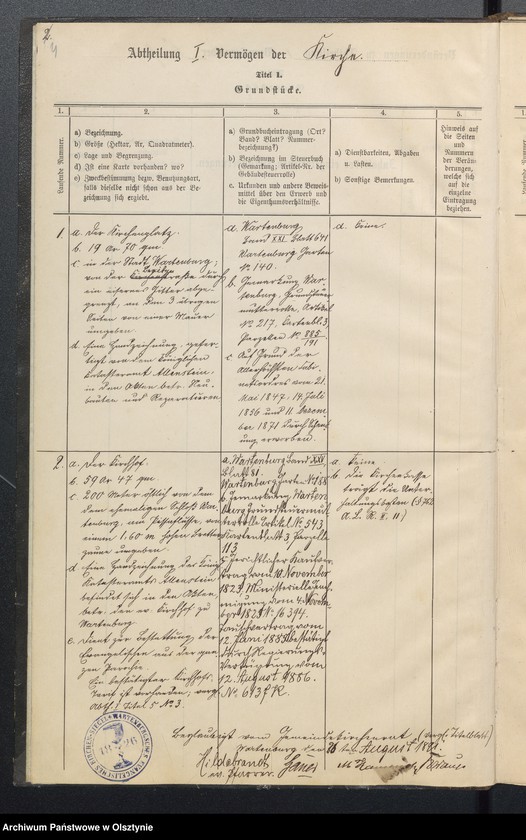 2.
Abtheilung I. Vermögen der Kirche.
Titel 1.
Grundstücke.
1.
2.
3.
4.
5.
1.
Laufende Nummer.
a) Bezeichnung.
b) Größe (Hektar, Ar, Quadratmeter).
c) Lage und Begrenzung.
d) Ist eine Karte vorhanden? wo?
e) Zweckbestimmung bezw. Benutzungsart,
falls dieselbe nicht schon aus der Be-
zeichnung sich ergiebt.
a) Grundbucheintragung (Ort?
Band? Blatt? Nummer-
bezeichnung?)
b) Bezeichnung im Steuerbuch
(Gemarkung; Artikel-Nr. der
Gebäudesteuerrolle)
c) Urkunden und andere Beweis-
mittel über den Erwerb und
die Eigenthumsverhältnisse.
a) Dienstbarkeiten, Abgaben
u. Lasten.
b) Sonstige Bemerkungen.
Hinweis auf
die Seiten
und
Nummern
der Verän-
derungen,
welche sich
auf die
einzelne
Eintragung
beziehen.
1.
a. Der Kirchenplatz.
b. 19 Ar 70 qm
c. in der Stadt Wartenburg;
von der straße durch
ein eisernes Gitter abge-
grenzt, an den 3 übrigen
Seiten von einer Mauer
umgeben.
d. Eine Handzeichnung, gefer-
tigt von dem Königlichen
Katasteramt Allenstein,
in den Akten betr. Neu-
bauten und Reparaturen
a. Wartenburg
Band XXI Blatt 641
Wartenburg Garten
No 140.
b. Gemarkung War-
tenburg, Grundsteuer-
mutterrolle, Artikel
No 217, Kartenbl. 3,
Parzellen No 885/191
c. Auf Grund der
Allerhöchsten Kabi-
netsordres vom 21.
Mai 1847, 14. Juli
1856 und 11. Dezem-
ber 1871 durch Schenk-
ung erworben.
a. Keine.
2.
a. Der Kirchhof.
b. 59 Ar 47 qm
c. 200 Meter östlich von dem
dem ehemaligen Schloß War-
tenburg, am , von
einem 1,60 m hohen Bretter-
zaune umgeben.
d. Eine Handzeichnung des Königl.
Katasteramts Allenstein
befindet sich in den Akten
betr. den ev. Kirchhof zu
Wartenburg.
e. Dient zur Bestattung der
Evangelischen aus der gan-
zen Parochie.
Ein bestätigter Kirchhofs-
Tarif ist vorhanden, vergl.
Abth. I Titel 5 No 3.
a. Wartenburg Band XXV
Blatt 81.
Wartenburg Garten No 188
b. Gemarkung Warten-
burg Grundsteuermut-
terrolle Artikel No 543
Kartenblatt 3 Parzelle
113
c. Gerichtlicher Kaufver-
trag vom 10. November
1823, Ministerielle Geneh-
migung vom 4. Novem-
ber 1823 No 16394.
Tauschvertrag vom
12. Juni 1885 bestätigt
durch Regierungs-
Verfügung vom
12. August 1886.
No. 6737 K.
a. Keine
b. die Kirchenkasse
trägt die Unter-
haltungskosten (§ 762
A. L. R. II. 11.)
Beglaubigt vom Gemeindekirchenrat (vergl. Titelblatt)
Wartenburg den 26ten August
Hildebrandt
ev. Pfarrer.
Archiwum Państwowe w Olsztynie